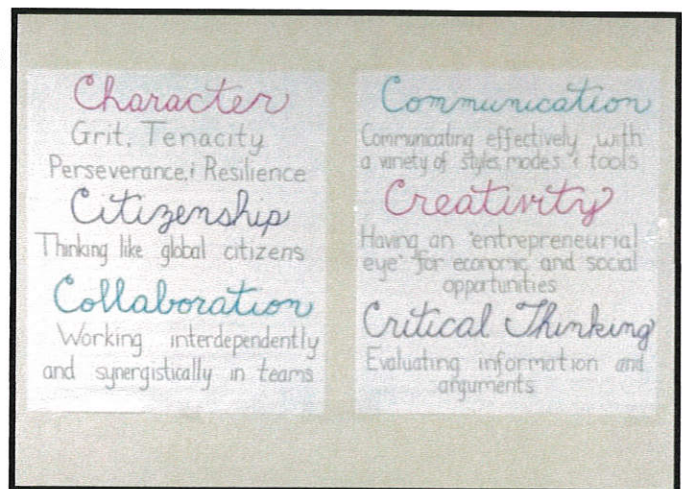 Character
Grit, Tenacity
Perseverance, & Resilience
Citizenship
Thinking like global citizens
Collaboration
Working interdependently
and synergistically in teams
Communication
Communicating effectively with
a variety of styles, modes & tools
Creativity
Having an "entrepreneurial
eye" for economic and social
opportunities
Critical Thinking
Evaluating information and
arguments